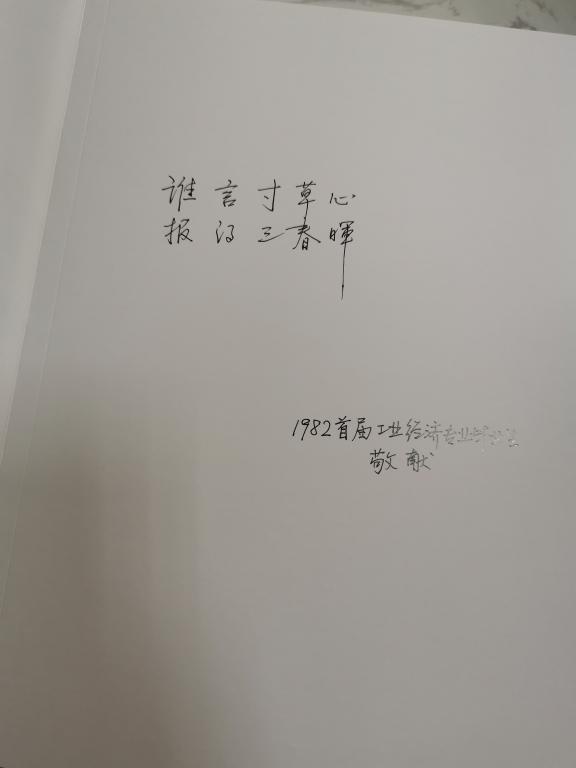 谁言寸草心
报得三春晖
1982首届工业经济专业毕业生
敬献